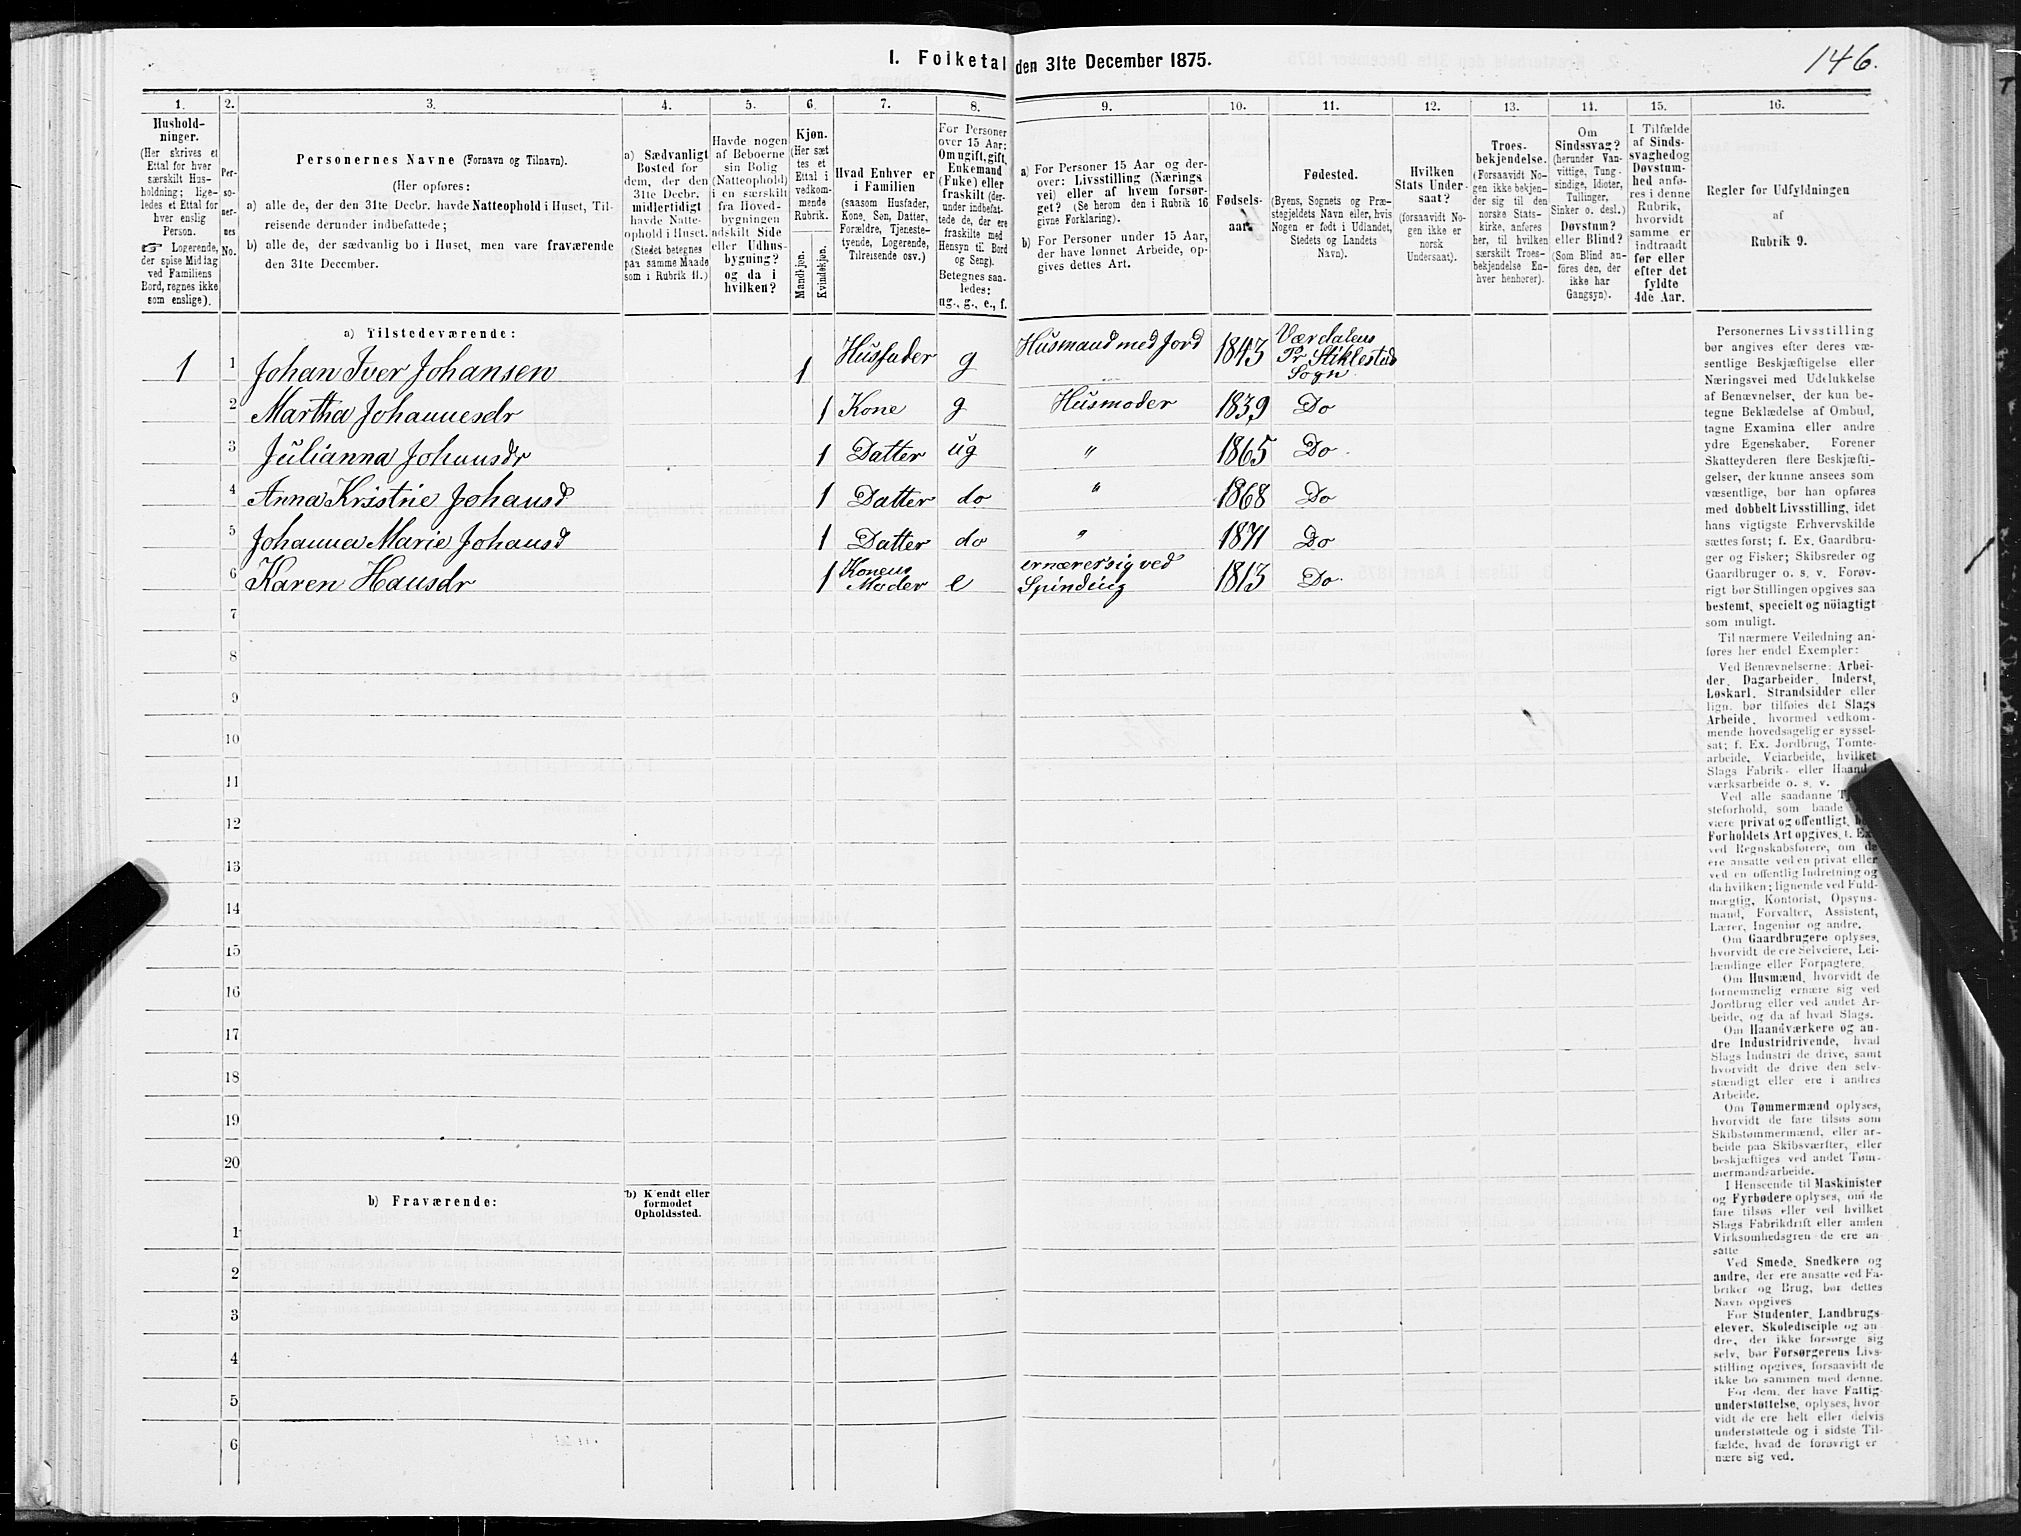 I. Folketal den 31te December 1875.
146.
1.
2.
3.
4.
5.
6.
7.
8.
9.
10.
11.
12.
13.
14.
15.
16.
Hushold-
ninger.
(Her skrives et
Ettal for hver
særskilt Hus-
holdning; lige-
ledes et Ettal for
hver enslig
Person.
☞ Logerende,
der spise Middag
ved Familiens
Bord, regnes ikke
som enslige).
Per-
so-
ner-
nes
No.
Personernes Navne (Fornavn og Tilnavn).
(Her opføres:
a) alle de, der den 31te Decbr. havde Natteophold i Huset, Til-
reisende derunder indbefattede;
b) alle de, der sædvanlig bo i Huset, men vare fraværende
den 31te December.
a) Sædvanligt
Bosted for
dem, der den
31te Decbr.
midlertidigt
havde Natte-
ophold i Huset.
(Stedet betegnes
paa samme Maade
som i Rubrik 11.)
Havde nogen
af Beboerne
sin Bolig
(Natteophold)
i en særskilt
fra Hoved-
bygningen
adskilt Side
eller Udhus-
bygning?
og da i
hvilken?
Kjøn.
(Her sæt
tes et
Ettal i
vedkom-
mende
Rubrik.
Mandkjøn.
Kvindekjøn.
Hvad Enhver er
i Familien
(saasom Husfader,
Kone, Søn, Datter,
Forældre, Tjeneste-
tyende, Logerende,
Tilreisende osv.)
For Personer
over 15 Aar:
Om ugift, gift,
Enkemand
(Enke) eller
fraskilt (der-
under indbefat-
tede de, der ere
fraskilte med
Hensyn til Bord
og Seng).
Betegnes saa-
ledes:
ug., g., e., f.
a) For Personer 15 Aar og der-
over: Livsstilling (Nærings
vei) eller af hvem forsør-
get? (Se herom den i Rubrik 16
givne Forklaring).
b) For Personer under 15 Aar,
der have lønnet Arbeide, op-
gives dettes Art.
Fødsels-
aar.
Fødested.
(Byens, Sognets og Præ-
stegjeldets Navn eller, hvis
Nogen er født i Udlandet,
Stedets og Landets
Navn).
Hvilken
Stats Under-
saat?
(forsaavidt No-
gen ikke er
norsk
Undersaat).
Troes-
bekjendelse.
(Forsaavidt No-
gen ikke bekjen-
der sig til den
norske Stats-
kirke, anføres
her, til hvilken
særskilt Troes-
bekjendelse En-
hver henhører).
Om
Sindssvag?
(herunder Van-
vittige, Tung-
sindige, Idioter,
Tullinger,
Sinker o. desl.)
Døvstum?
eller Blind?
(Som Blind an-
føres den, der
ikke har
Gangsyn).
I Tilfælde
af Sinds-
svaghed og
Døvstum-
hed anfø-
res i denne
Rubrik,
hvorvidt
samme er
indtraadt
før eller
efter det
fyldte
4de Aar.
Regler for Udfyldningen
af
Rubrik 9.
a) Tilstedeværende:
1 1 Johan Iver Johansen 1 Husfader g Husmand med Jord 1843 Værdalens Pr. Stiklestad Sogn
2 Martha Johannesdr 1 Kone g Husmoder 1839 Do
3 Julianna Johansdr 1 Datter ug " 1865 Do.
4 Anna Kristie Johansd 1 Datter do " 1868 Do
5 Johanna Marie Johansd 1 Datter do " 1871 Do
6 Karen Hansdr 1 Konens Moder e ernærer sig ved Spinding 1813 Do.
7
8
9
10
11
12
13
14
15
16
17
18
19
20
b) Fraværende:
b) Kjendt eller
formodet
Opholdssted.
1
2
3
4
5
6
Personernes Livsstilling
bør angives efter deres væ-
sentlige Beskjæftigelse eller
Næringsvei med Udelukkelse
af Benævnelser, der kun be-
tegne Beklædelse af Ombud,
tagne Examina eller andre
ydre Egenskaber. Forener
Skatteyderen flere Beskjæfti-
gelser, der kunne ansees som
væsentlige, bør han opføres
med dobbelt Livsstilling, idet
hans vigtigste Erhvervskilde
sættes først; f. Ex. Gaardbru-
ger og Fisker; Skibsreder og
Gaardbruger o. s. v. Forøv-
rigt bør Stillingen opgives saa
bestemt, specielt og nøiagtigt
som muligt.
Til nærmere Veiledning an-
føres her endel Exempler:
Ved Benævnelserne: Arbei-
der, Dagarbeider, Inderst,
Løskarl, Strandsidder eller
lign. bør tilføies det Slags
Arbeide, hvormed vedkom-
mende hovedsagelig er syssel-
sat; f. Ex. Jordbrug, Tomte-
arbeide, Veiarbeide, hvilket
Slags Fabrik- eller Haand-
værksarbeide o. s. v.
Ved alle saadanne
steforhold, som baade
være privat og offentligt,
Forholdets Art opgives, f. Ex.
ved Regnskabsførere, om de
ere ansatte ved en privat eller
ved en offentlig Indretning og
da hvilken; lignende ved Fuld-
mægtig, Kontorist, Opsyns-
mand, Forvalter, Assistent,
Lærer, Ingeniør og andre.
Om Gaardbrugere oplyses,
hvorvidt de ere Selveiere, Lei-
lændinge eller Forpagtere.
Om Husmænd, hvorvidt de
fornemmelig ernære sig ved
Jordbrug eller ved andet Ar-
beide, og da af hvad Slags.
Om Haandværkere og an-
dre Industridrivende, hvad
Slags Industri de drive, samt
hvorvidt de drive den selv-
stændigt eller ere i andres
Arbeide.
Om Tømmermænd oplyses,
hvorvidt de fare tilsøs som
Skibstømmermænd, eller ar-
beide paa Skibsværfter, eller
beskjæftiges ved andet Tøm-
mermandsarbeide.
I Henseende til Maskinister
og Fyrbødere oplyses, om de
fare tilsøs eller ved hvilket
Slags Fabrikdrift eller anden
Virksomhedsgren de ere an-
satte
Ved Smede, Snedkere og
andre, der ere ansatte ved Fa-
briker og Brug, bør dettes
Navn opgives
For Studenter, Landbrugs-
elever, Skoledisciple og an-
dre, der ikke forsørge sig
selv, bør Forsørgerens Livs-
stilling opgives, forsaavidt de
ikke bo sammen med denne.
For dem, der have Fattig-
understøttelse, oplyses, hvor-
vidt de ere helt eller delvis
understøttede og i sidste Til-
fælde, hvad de forøvrigt er
nære sig ved.